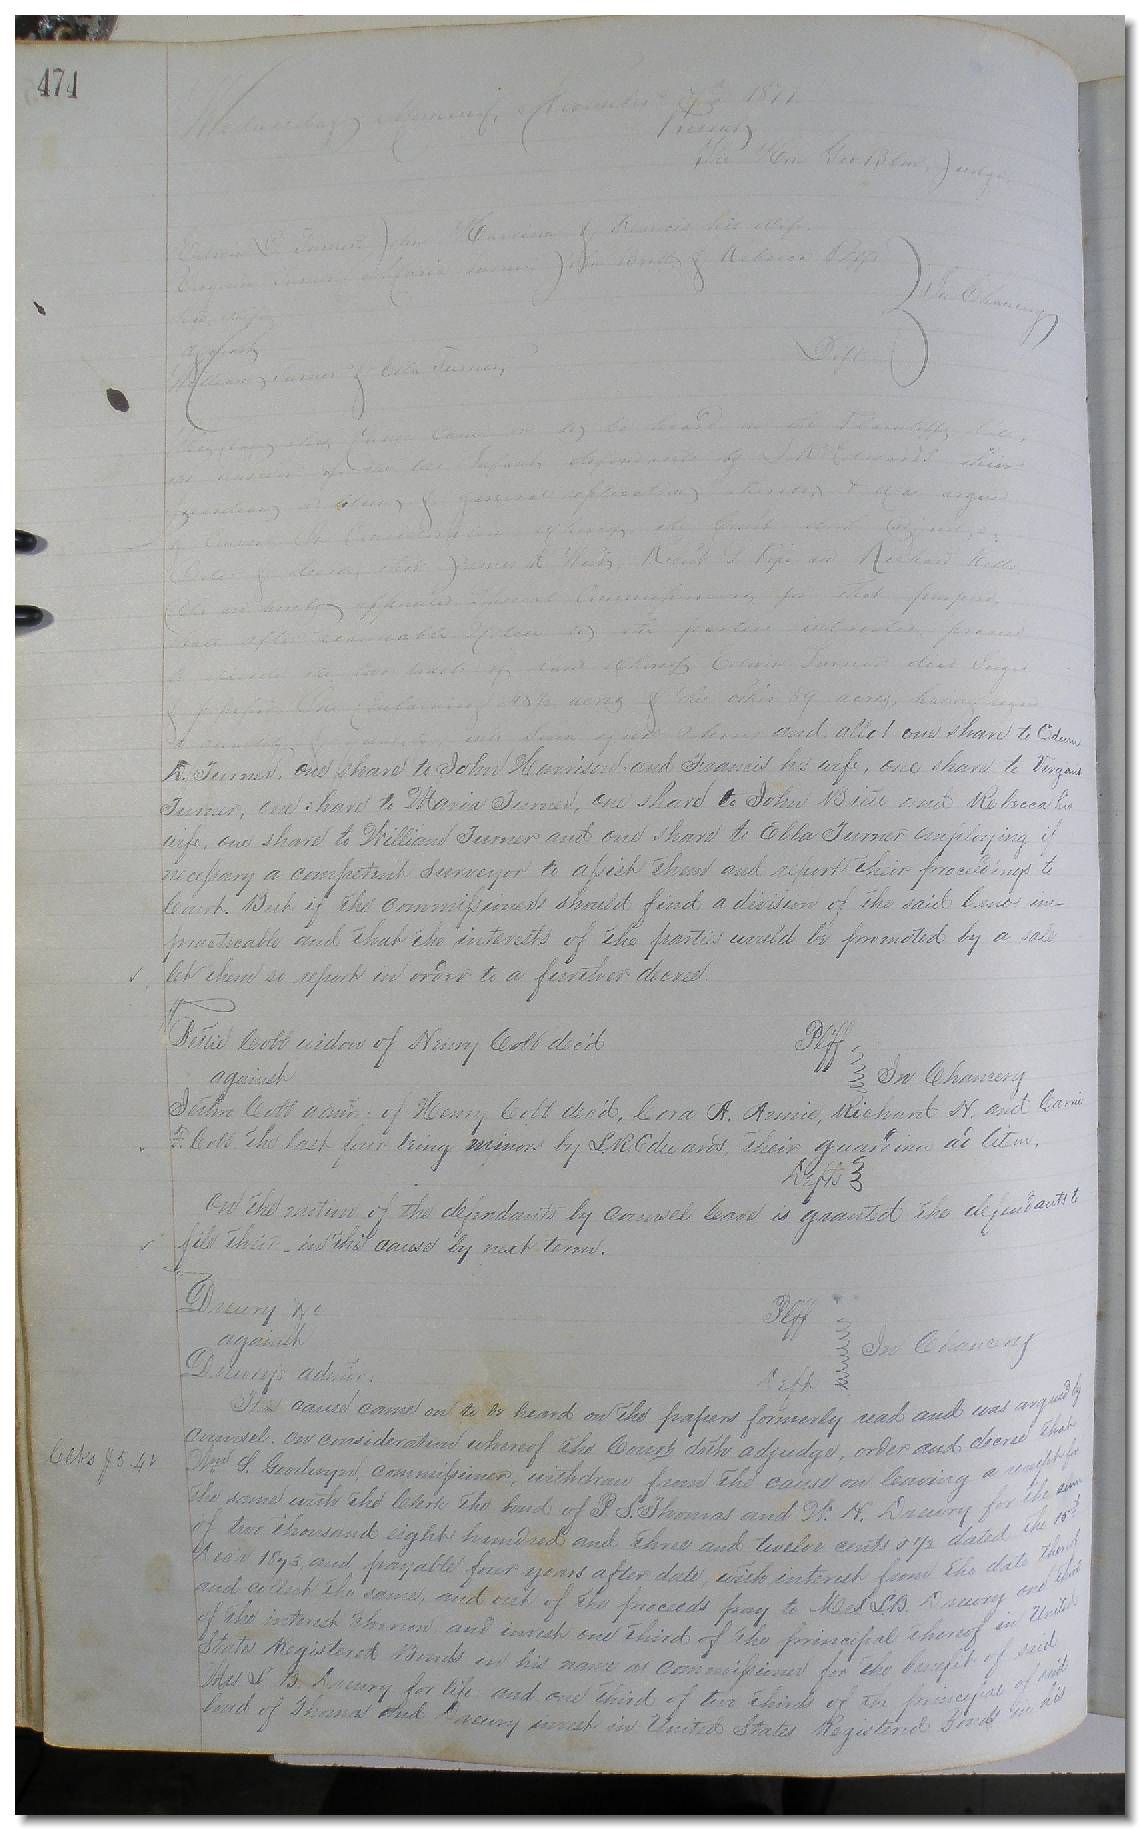 474
Wednesday Morning, November 7th 1877
Present,
The Hon Geo Blow, Judge
Turner, John Harrison & Francis his wife,
Virginia Turner, Maria Turner, John & Rebecca Plffs
his wife
In Chancery
against
Defts
William Turner & Ella Turner,
This day this cause came on to be heard on the Plaintiffs bill,
answer of the Infant defendants by L R Edwards their
guardian ad litem, & general replication thereto & was argued
by Counsel On Consideration whereof the Court doth adjudge,
Order & decree, that James
who are hereby appointed Special Commissioners for that purpose,
after reasonable notice to the parties interested, proceed
to divide the two tracts of land whereof Edwin Turner died seized
& possessed One Containing acres & the other 89 acres, having regard
to quality & quantity, into seven equal shares and allot one share to Edwin
R. Turner, one share to John Harrison and Francis his wife, one share to Virginia
Turner, one share to Maria Turner, one share to John and Rebecca his
wife, one share to William Turner and one share to Ella Turner employing if
necessary a competent surveyor to assist them and report their proceedings to
Court. But if the commissioners should find a division of the said lands im-
practicable and that the interests of the parties would be promoted by a sale
let them so report in order to a further decree
Cobb widow of Henry Cobb dec'd Plff
against In Chancery
Cobb admr. of Henry Cobb dec'd, Cora A. Annie, Richard H. and Carrie
F. Cobb the last four being minors by L.R. Edwards, their guardian ad litem,
Defts
On the motion of the defendants by counsel leave is granted the defendants to
file their in this cause by next term.
Drewry &c Plff
against In Chancery
Drewry's admor. Deft
This cause came on to be heard on the papers formerly read and was argued by
counsel. On consideration whereof the Court doth adjudge, order and decree that
Costs $5.42
Wm S. Goodwyn, commissioner, withdraw from the cause on leaving a receipt for
the same with the Clerk the bond of P. S. Thomas and W. H. Drewry for the sum
of two thousand eight hundred and three and twelve cents & 1/2 dated the 15th
Decr 1873 and payable four years after date, with interest from the date thereof
and collect the same, and out of the proceeds pay to Mrs L.B. Drewry one third
of the interest thereon and invest one third of the principal thereof in United
State Registered Bonds in his name as commissioner for the benefit of said
Mrs L. B. Drewry for life and one third of two thirds of the principal of said
bond of Thomas and Drewry invest in United States Registered Bonds in his